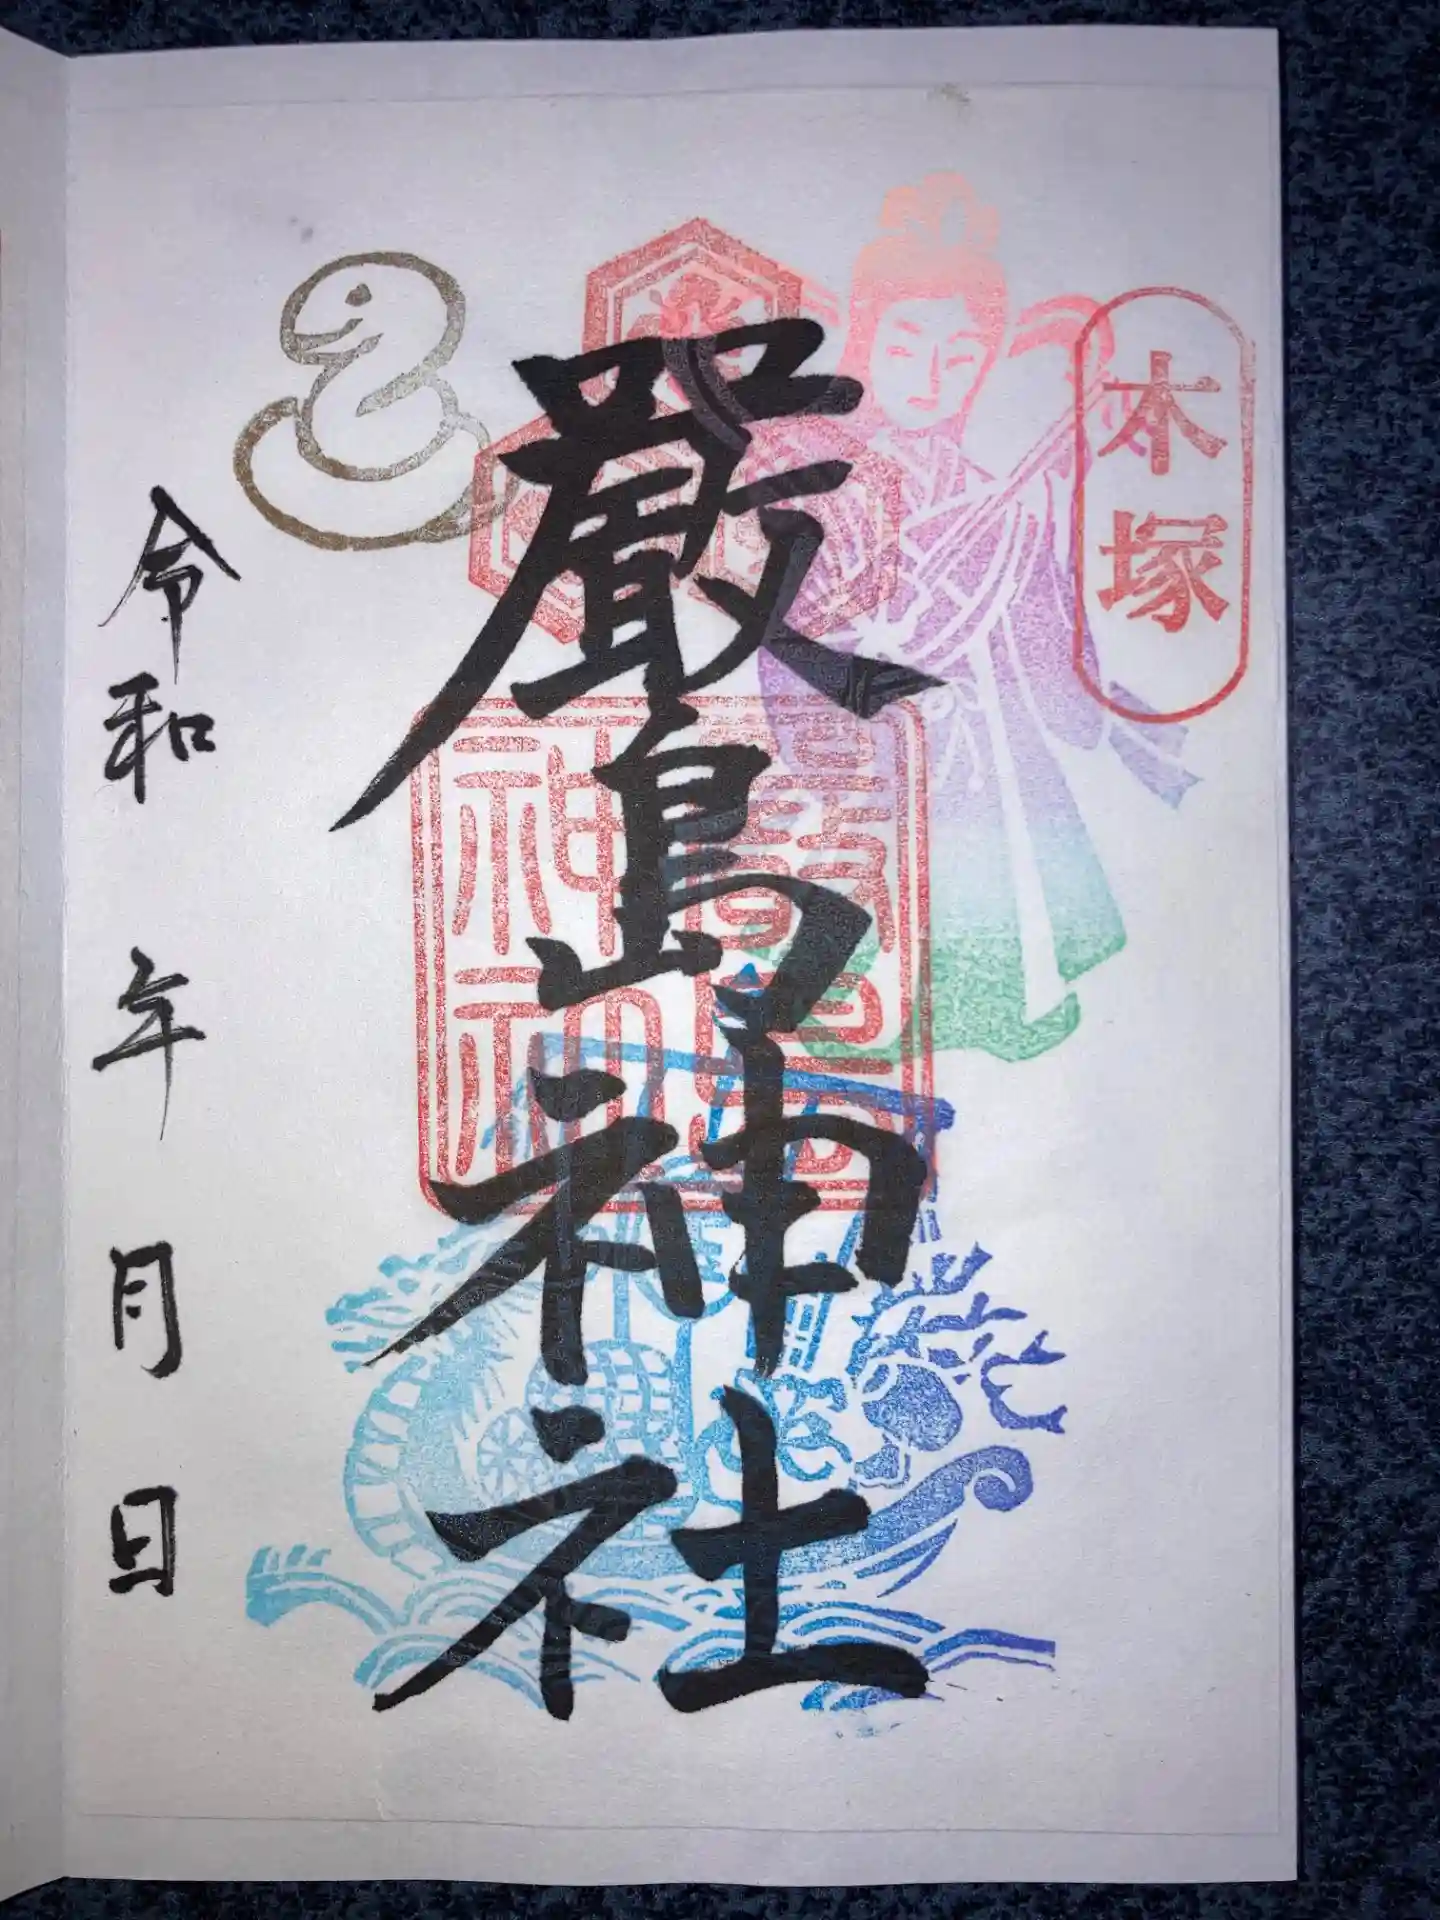 木塚
嚴島神社
嚴島
神社
令和 年 月 日